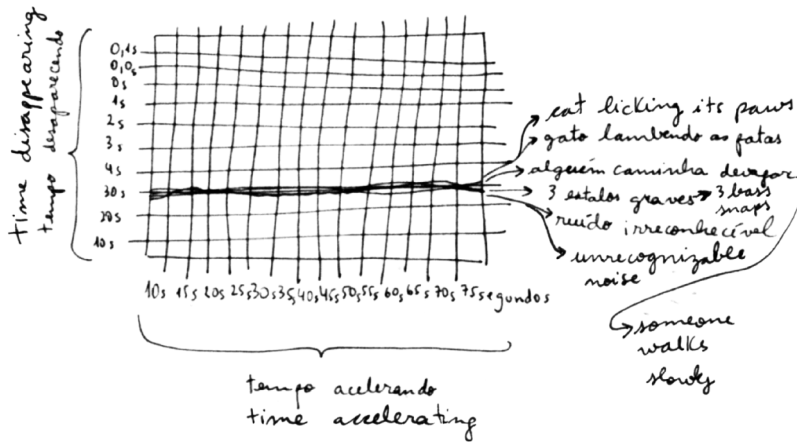 time disappearing
tempo desaparecendo
0,1s
0,0s
0s
1s
2s
3s
4s
30s
20s
10s
10s 15s 20s 25s 30s 35s 40s 45s 50s 55s 60s 65s 70s 75segundos
tempo acelerando
time accelerating
cat licking its paws
gato lambendo as patas
alguém caminha devagar
3 estalos graves → 3 bass
snaps
ruído irreconhecível
unrecognizable
noise
someone
walks
slowly